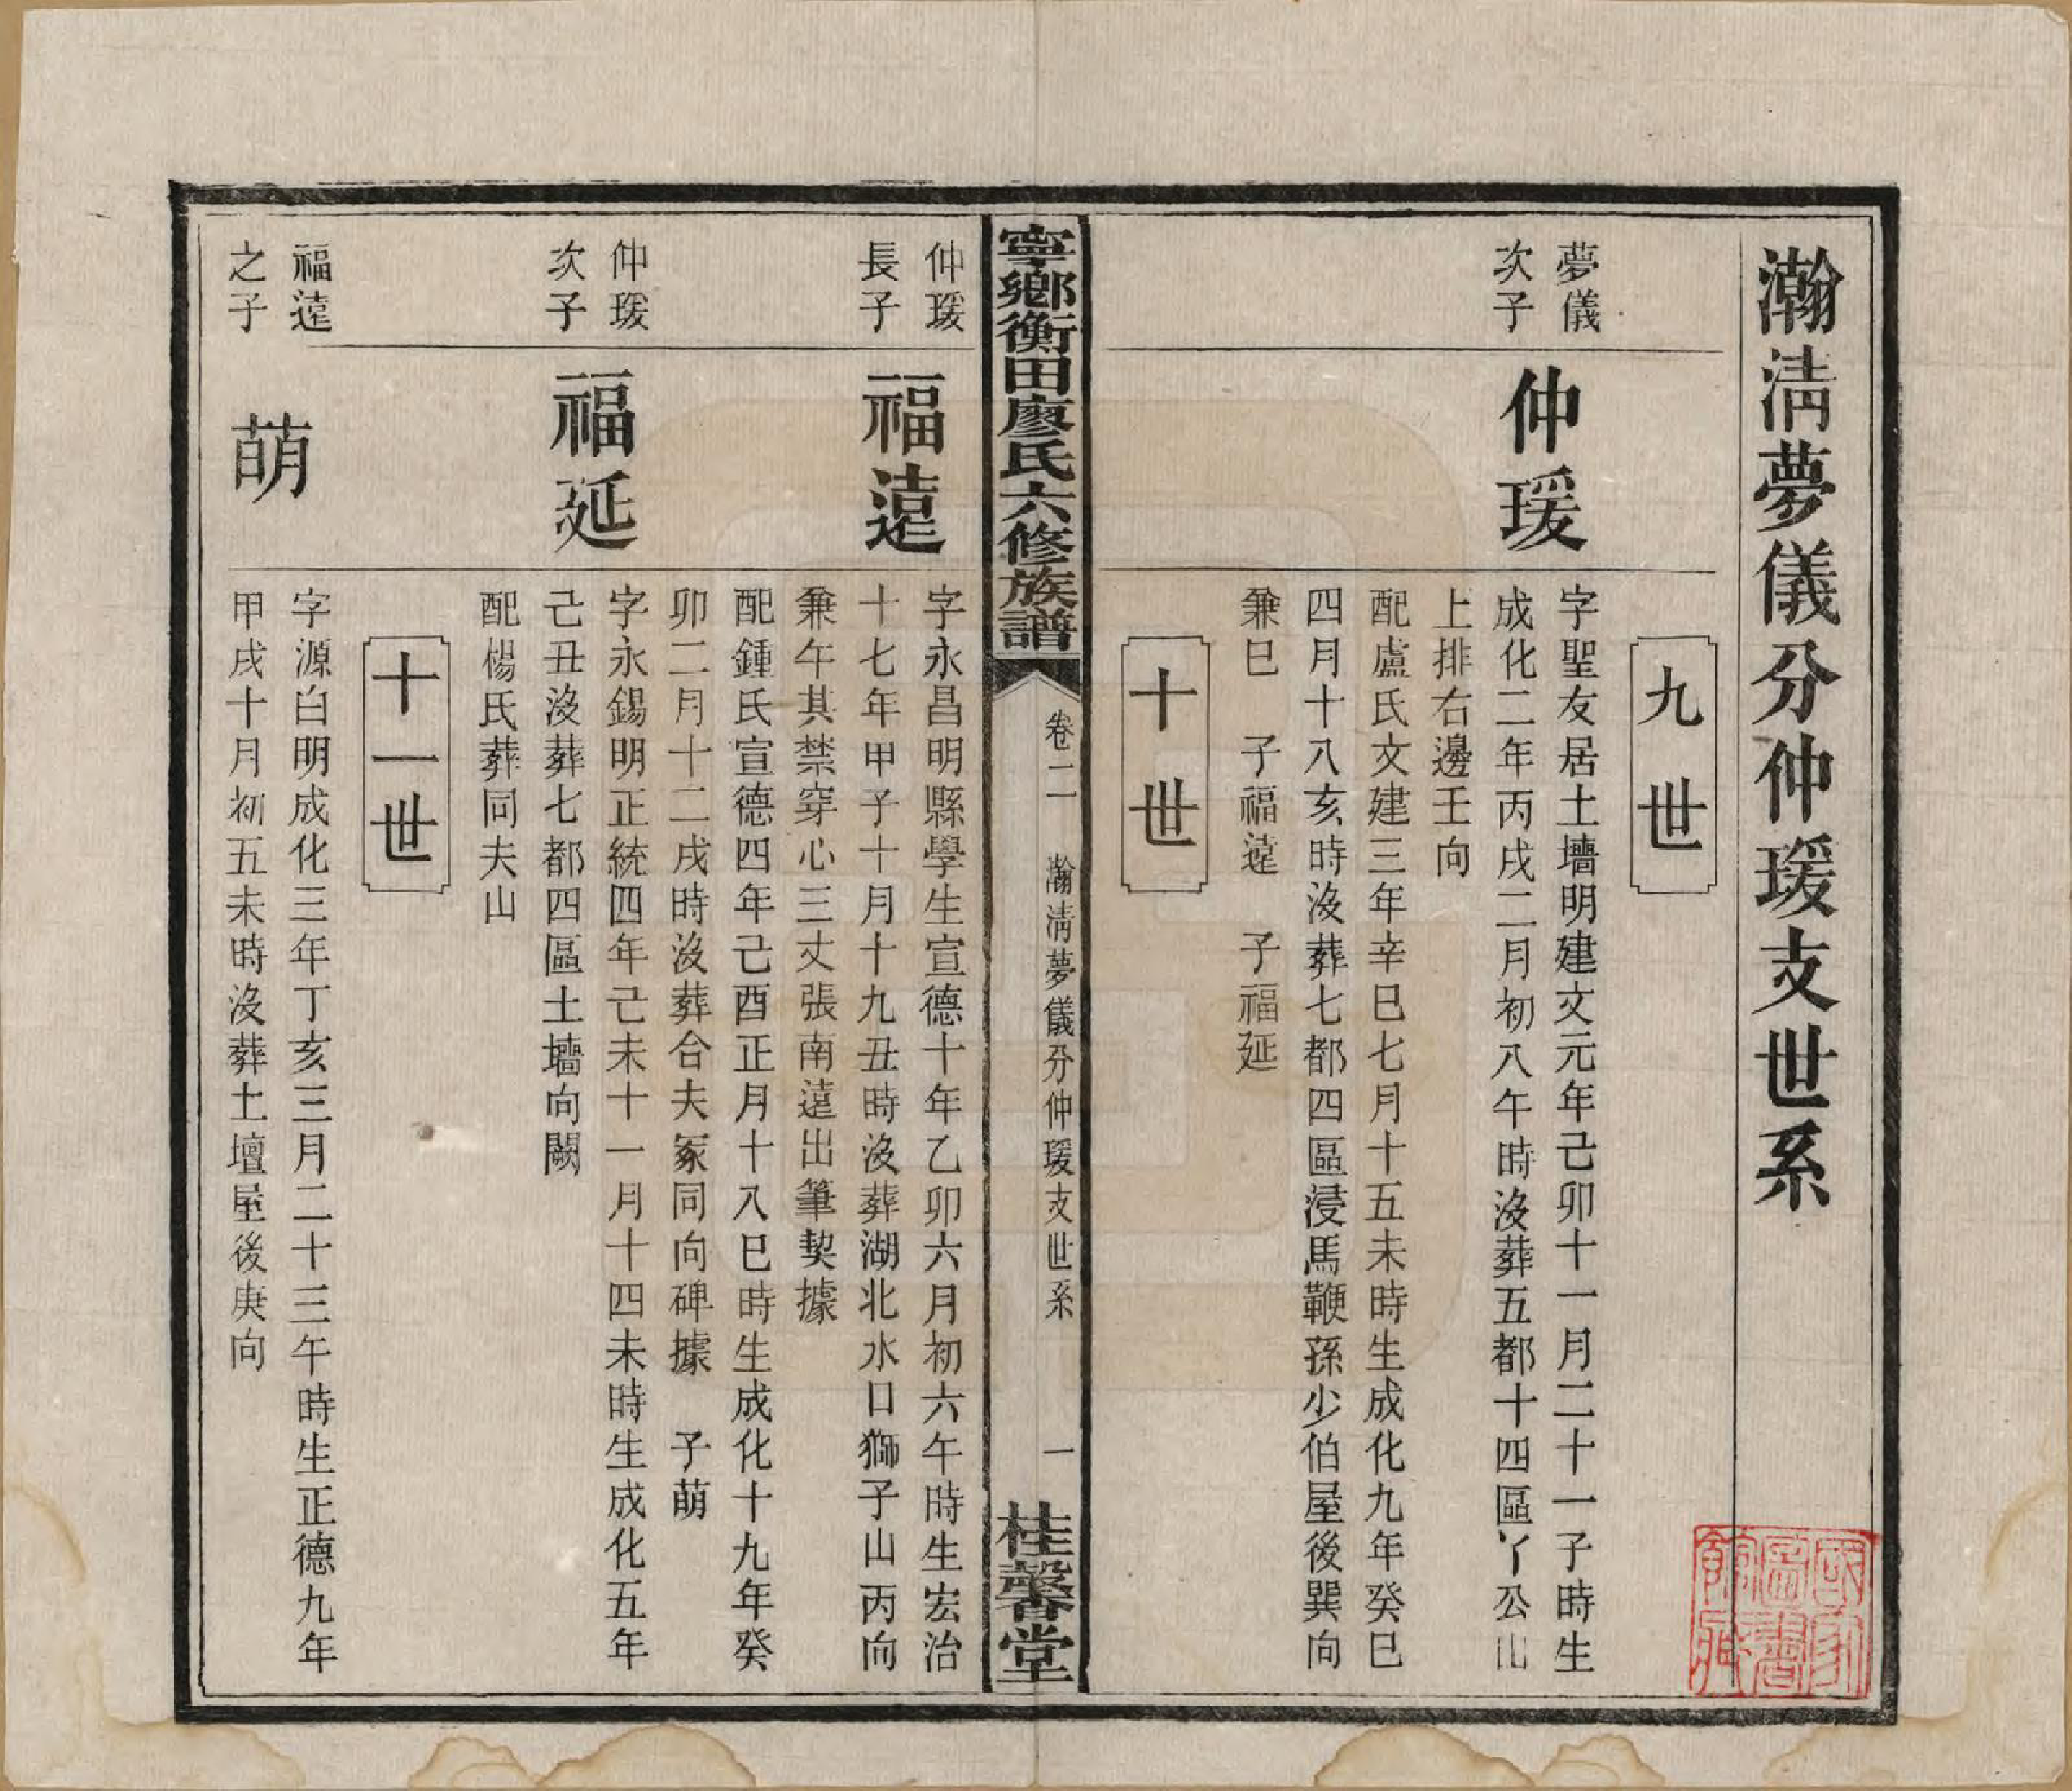 瀚淸夢儀分仲瑗支世系
九世
夢儀
次子
仲瑗
字聖友居土墻明建文元年己卯十一月二十一子時生
成化二年丙戌二月初八午時沒葬五都十四區丫公山
上排右邊壬向
配盧氏文建三年辛巳七月十五未時生成化九年癸巳
四月十八亥時沒葬七都四區浸馬鞭孫少伯屋後巽向
兼巳　子福遠　子福延
十世
寧鄉衡田廖氏六修族譜
卷二　瀚淸夢儀分仲瑗支世系　一
桂馨堂
仲瑗
長子
福遠
字永昌明縣學生宣德十年乙卯六月初六午時生宏治
十七年甲子十月十九丑時沒葬湖北水口獅子山丙向
兼午其禁穿心三丈張南遠出筆契據
配鍾氏宣德四年己酉正月十八巳時生成化十九年癸
卯二月十二戌時沒葬合夫冢同向碑據　子萌
仲瑗
次子
福延
字永錫明正統四年己未十一月十四未時生成化五年
己丑沒葬七都四區土墻向闕
配楊氏葬同夫山
十一世
福遠
之子
萌
字源白明成化三年丁亥三月二十三午時生正德九年
甲戌十月初五未時沒葬土壇屋後庚向
國家圖書館藏